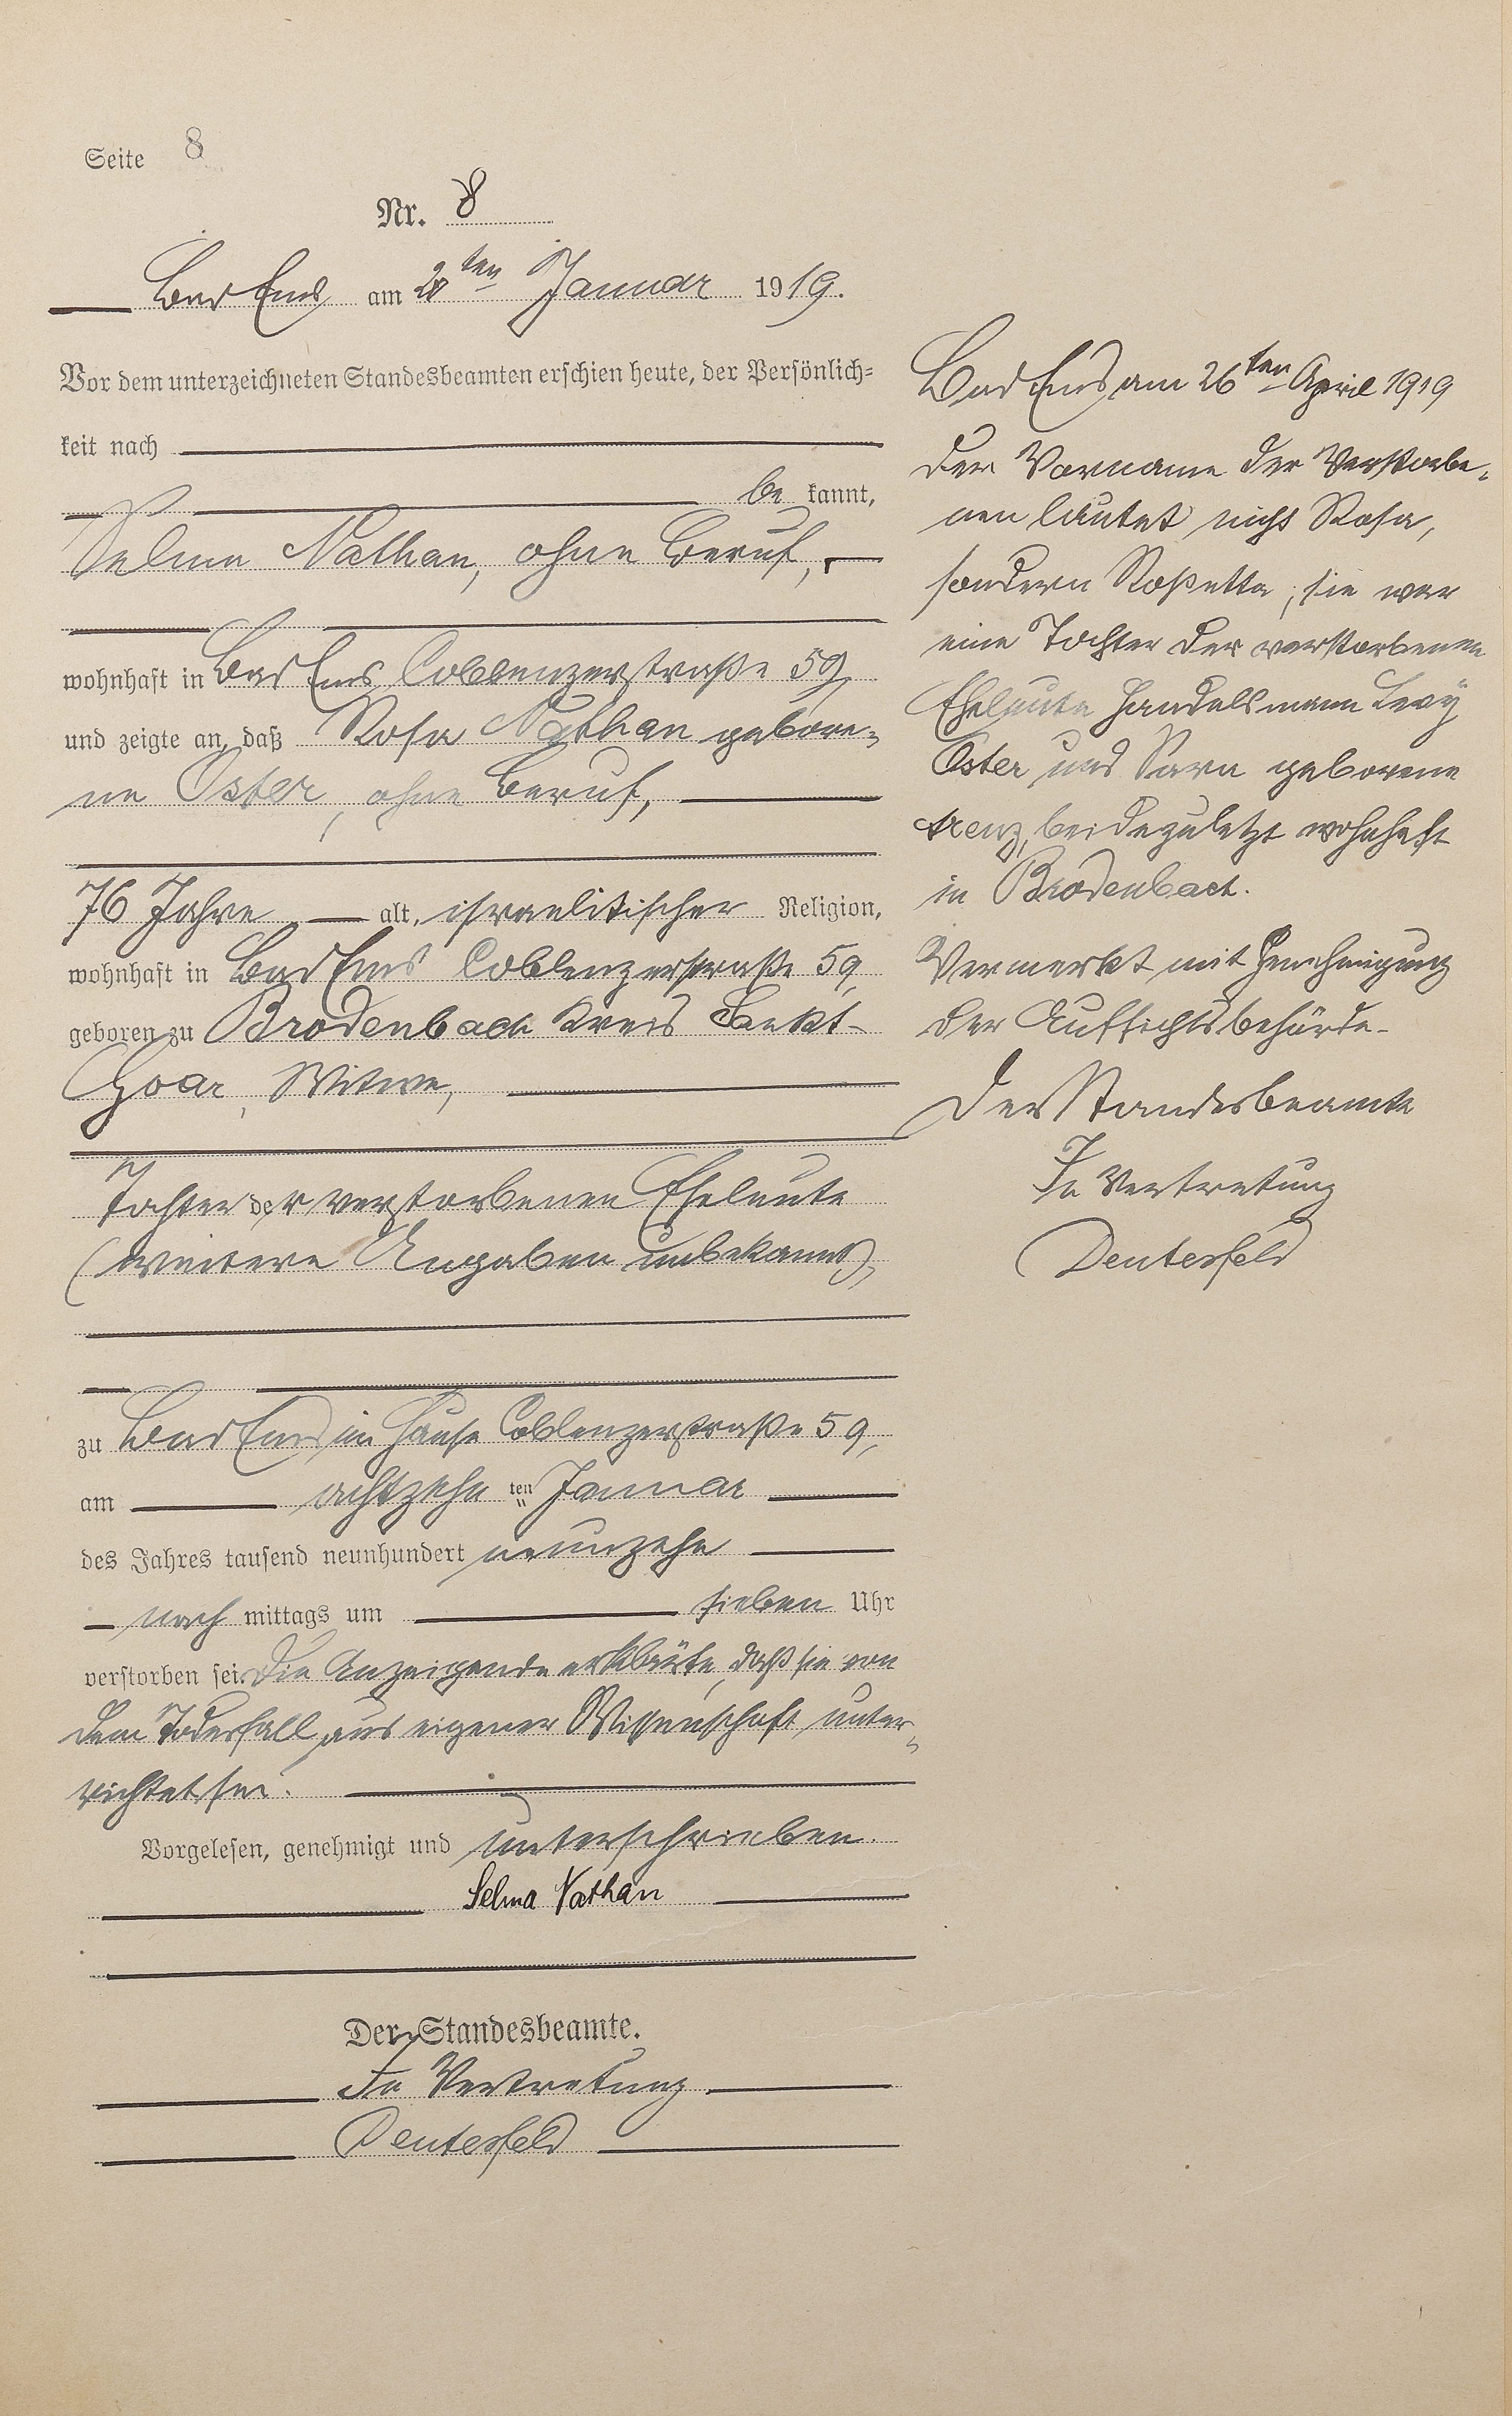 Seite 8
Nr. 8
Bad Ems am 20ten Januar 1919.
Vor dem unterzeichneten Standesbeamten erschien heute, der Persönlich=
keit nach
be kannt,
Selma Nathan, ohne Beruf,
wohnhaft in Bad Ems Coblenzerstraße 59
und zeigte an, daß Rosa Nathan gebore=
ne Oster, ohne Beruf,
76 Jahre alt, israelitischer Religion,
wohnhaft in Bad Ems Coblenzerstraße 59,
geboren zu Brodenbach Kreis Sankt-
Goar, Witwe,
Tochter der verstorbenen Eheleute
(weitere Angaben unbekannt),
zu Bad Ems im Hause Coblenzerstraße 59,
am achtzehn ten Januar
des Jahres tausend neunhundert neunzehn
nach mittags um sieben Uhr
verstorben sei. Die Anzeigende erklärte, daß sie von
dem Todesfall aus eigener Wissenschaft unter=
richtet sei.
Vorgelesen, genehmigt und unterschrieben.
Selma Nathan
Der Standesbeamte.
In Vertretung
Deutesfeld
Bad Ems am 26ten April 1919
Der Vorname der Verstorbe=
nen lautet nicht Rosa,
sondern Roßetta; sie war
eine Tochter der verstorbenen
Eheleute Handelsmann Levy
Oster und Sara geborene
beide zuletzt wohnhaft
in Brodenbach.
Vermerkt mit Genehmigung
der Aufsichtsbehörde.
Der Standesbeamte
In Vertretung
Deutesfeld